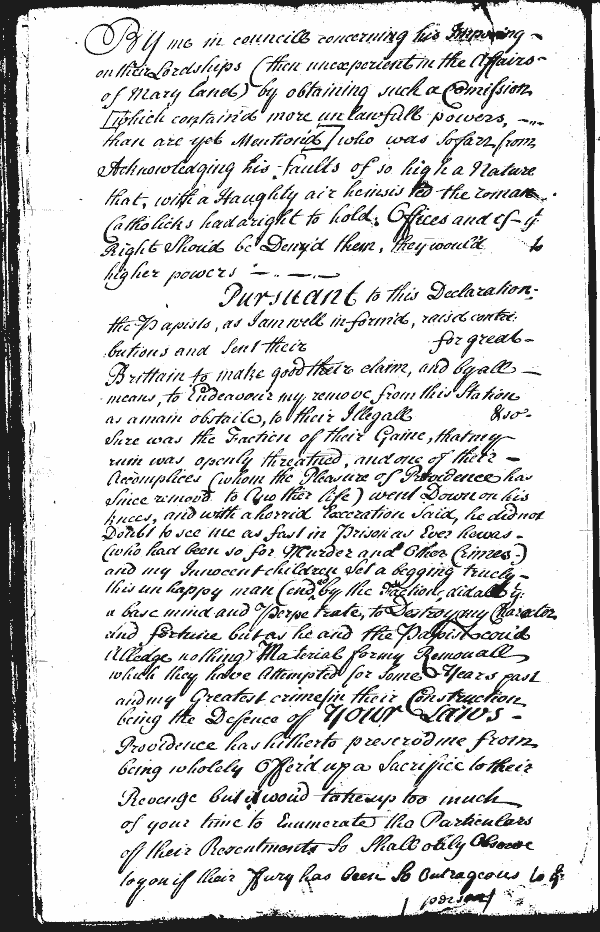 By me in councill concerning his Imposing -
on their Lordships (then unexperient in the Affairs -
of Maryland) by obtaining such a Comission
[which contain'd more unlawfull powers, -..
than are yet Mention'd] who was so farr from
Acknowledging his faults of so high a Nature
that, with a Haughty air he insisted the roman
Catholicks had a right to hold. Offices and if yt
Right Shou'd be Deny'd them, they wou'd to
higher powers -.-.-
Pursuant to this Declaration
the Papists, as I am well inform'd, rais'd contri
butions and Sent their for great -
Brittain to make good their claim, and by all -
means, to Endeavour my remove from this Station
as a main obstacle, to their Illegall & so -
Sure was the Faction of their Game, that my
ruin was openly threatned, and one of their -
Accomplices (whom the Pleasure of Providence has
Since remov'd to Another life) went Down on his
knees, and with a horrid Execration Said, he did not
Doubt to see me as fast in Prison as Ever he was -
(who had been so for Murder and Other Crimes)
and my Innocent children Set a begging truely -
this unhappy man by the Faction, did all yt
a base mind and perpetrate, to Destroy my Charactor
and forture but as he and the Papists cou'd
Alledge nothing Material for my Removall
which they have Attempted for some Years past
and my Greatest crime in their Construction
being the Defence of Your Laws -
Providence has hitherto preserv'd me from
being wholely Offer'd up a Sacrifice to their
Revenge but it wou'd take up too much
of your time to Enumerate the Particulars
of their Resentments So Shall only Observe
to you if their Fury has been So Outrageous to ye
person